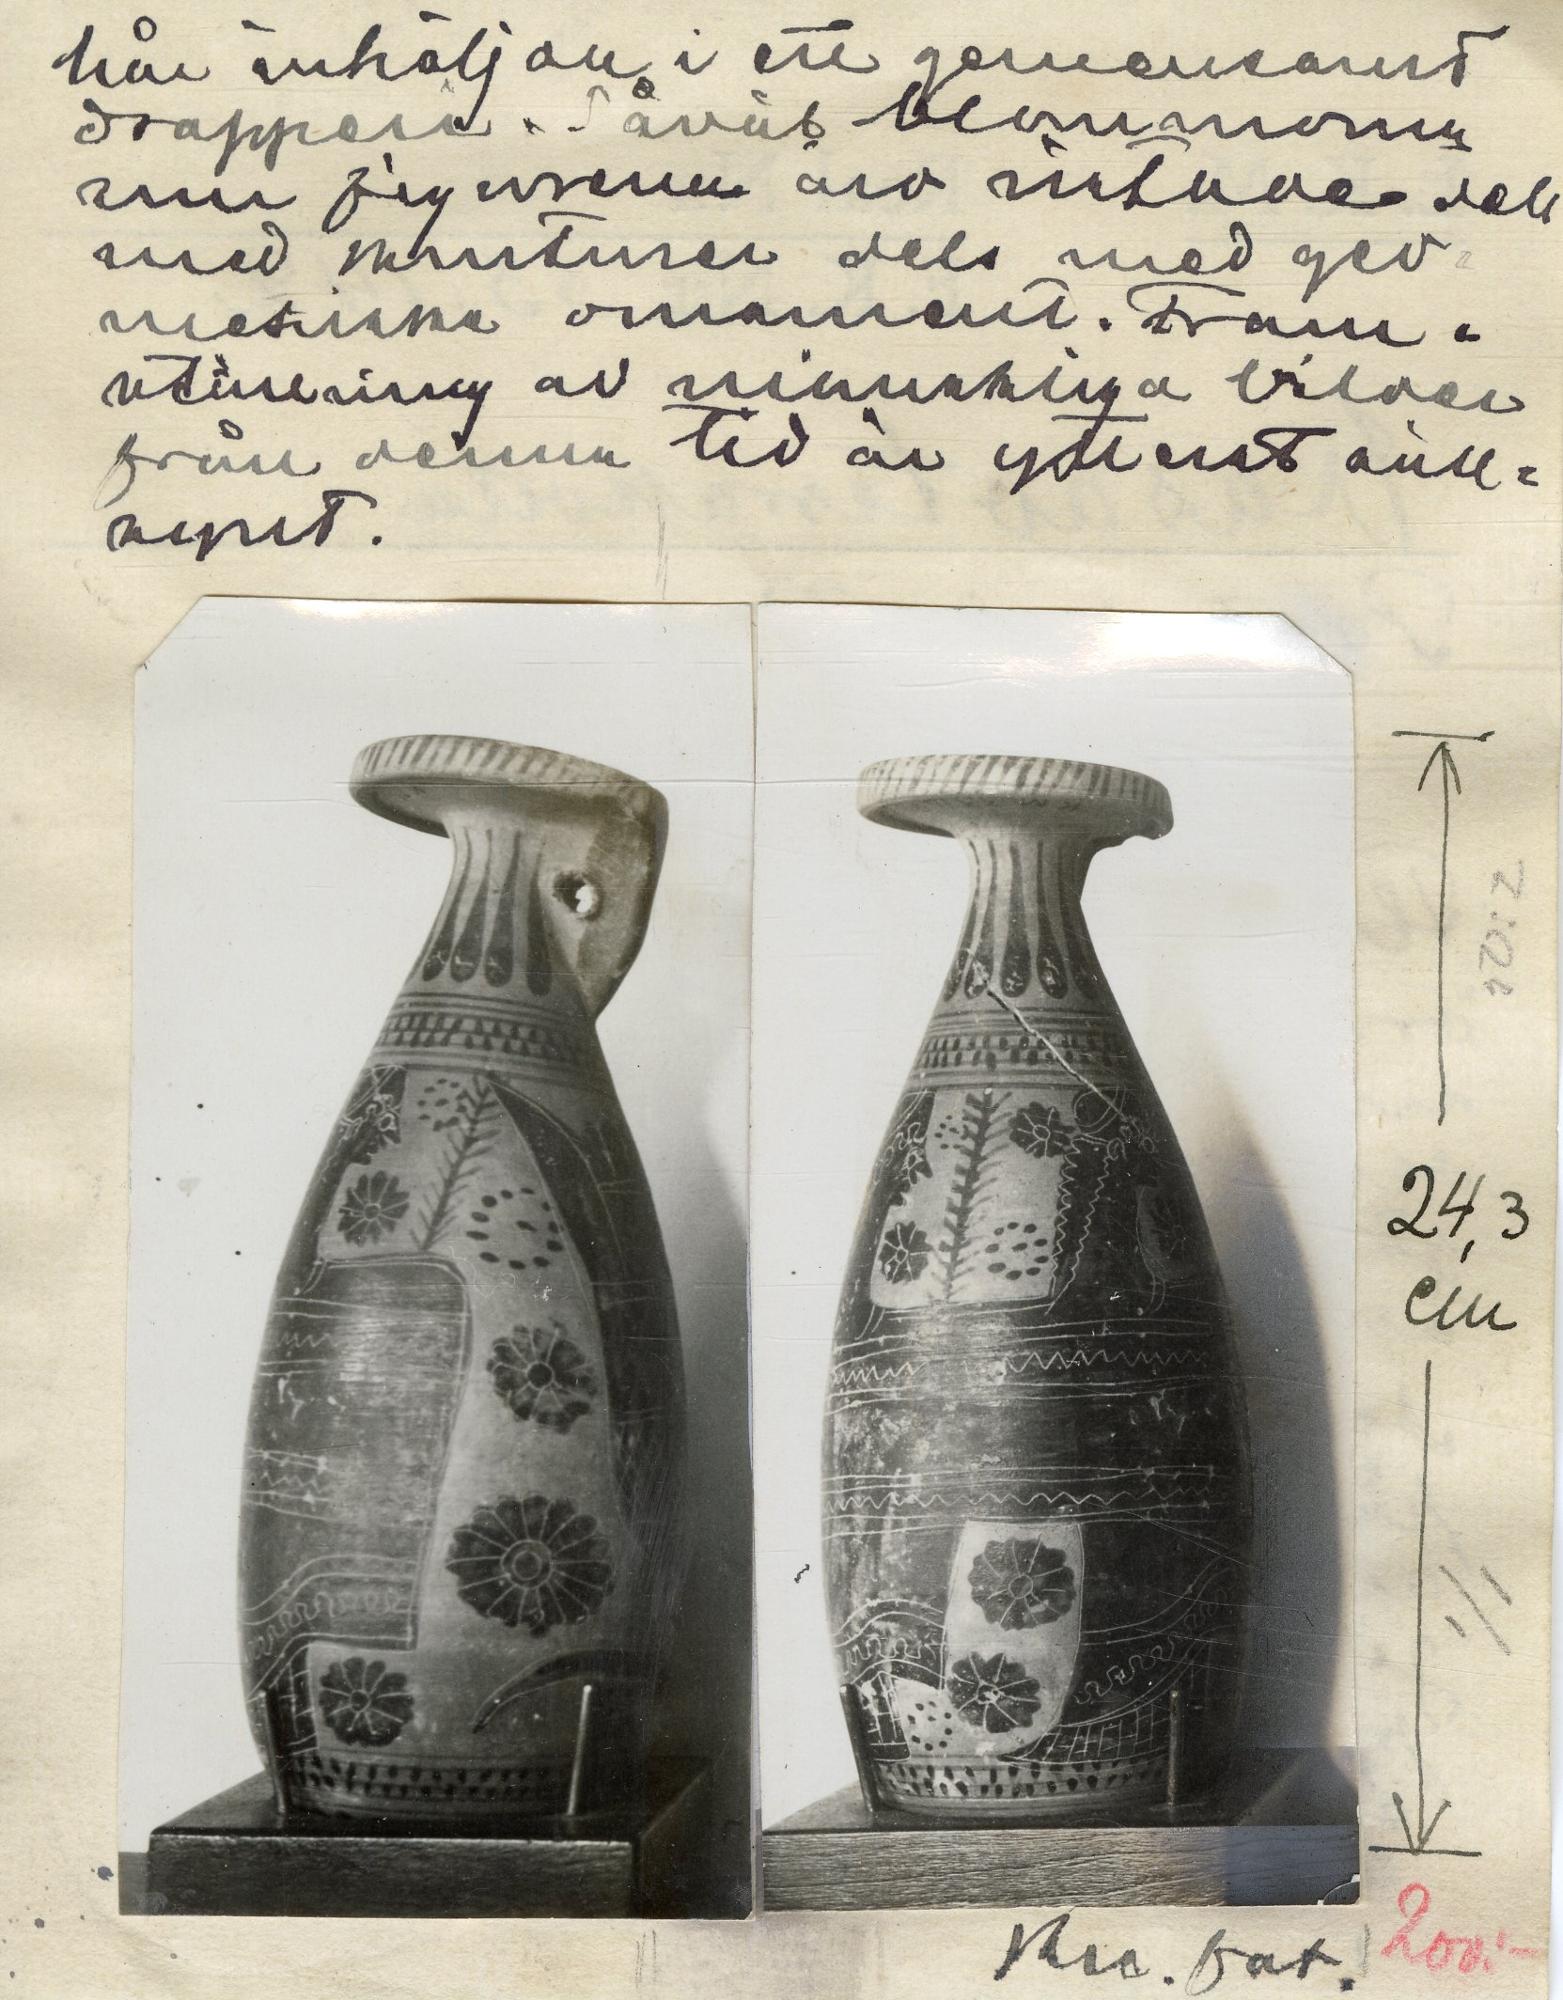 här inhöljda i ett gemensamt
draperi. Såväl blommorna
som figurerna äro ristade dels
med konturer dels med geo-
metriska ornament. Fram-
ställning av mänskliga bilder
från denna tid är ytterst säll-
synt.
24,3
cm
1/1
200:-